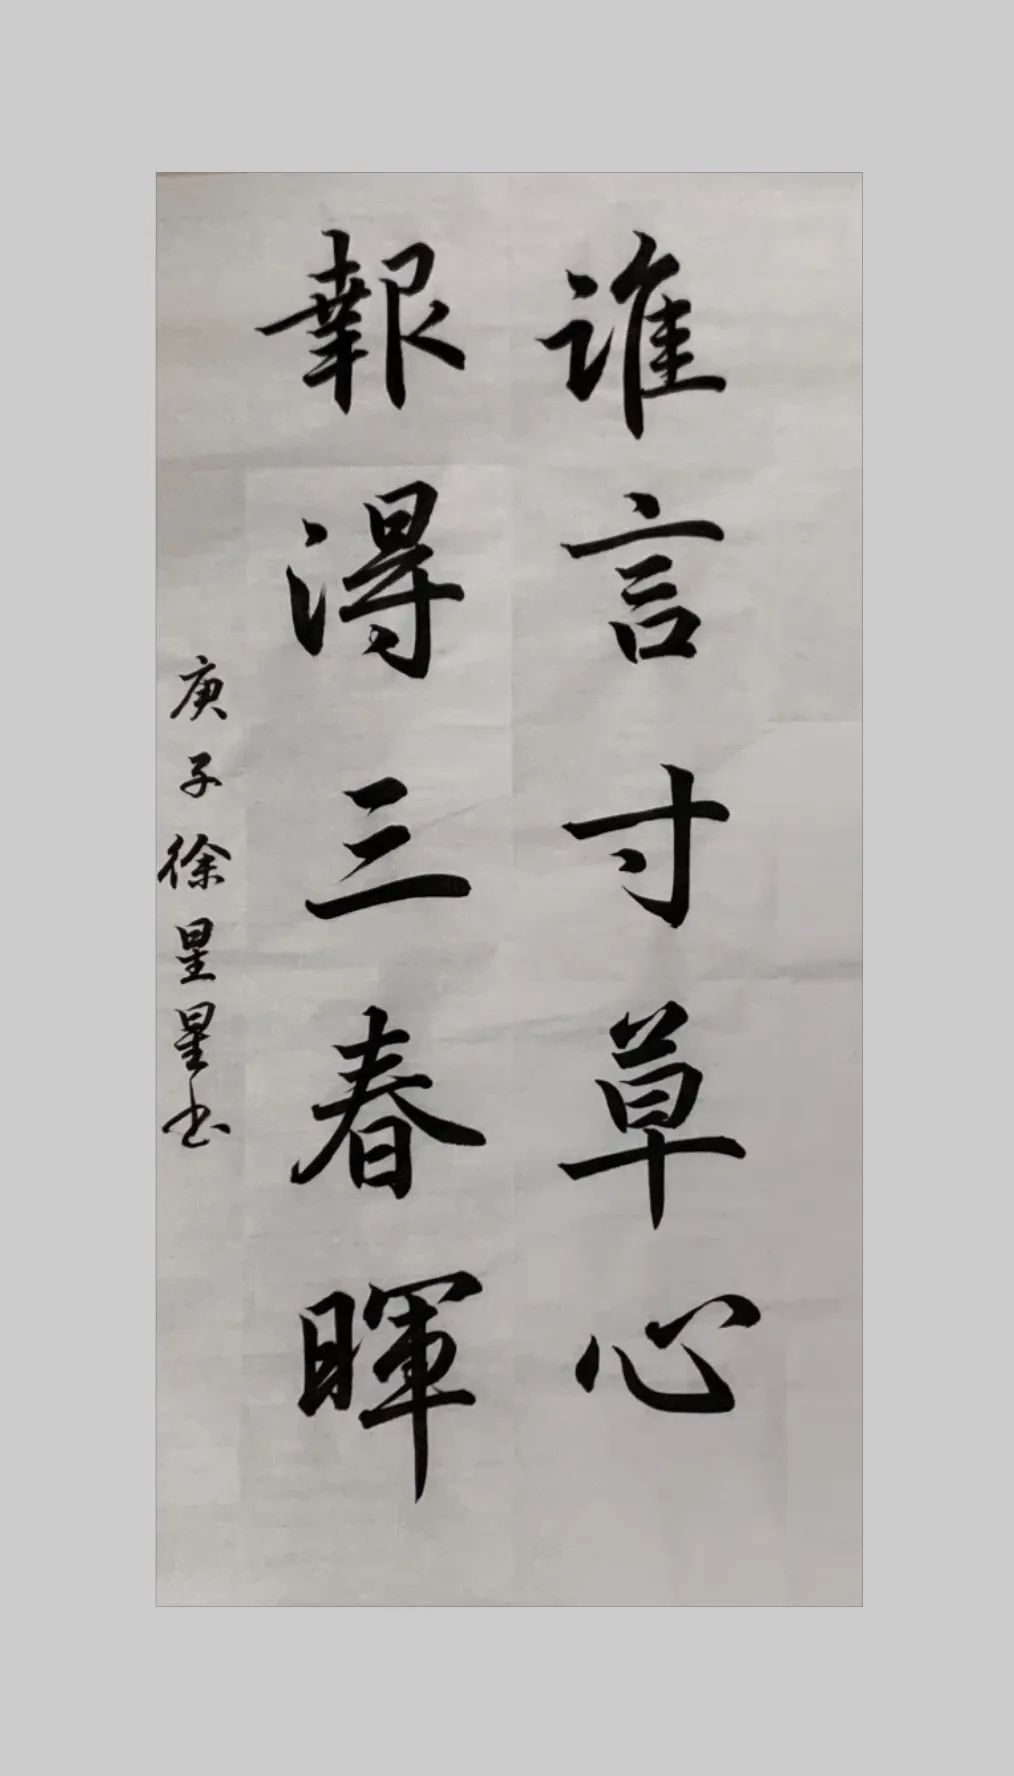 谁言寸草心
報得三春暉
庚子徐星星书